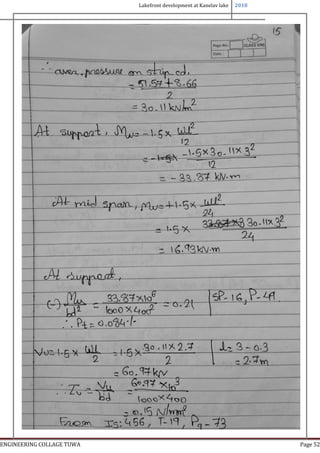 Lakefront development at Kanelav lake 2018
15
Page No.
Date
∴ aver. pressure on strip cd.
= 51.57+8.66
2
= 30.11 kN/m²
At support, Mu = -1.5 × wl²
12
= -1.5×30.11×3²
12
= -33.87 kN.m
At mid span, Mu = +1.5 × wl²
24
= 1.5 × 30.11×3²
24
= 16.93 kN.m
At support,
(-) Mu/bd² = 33.87×10⁶ / 1000×400² = 0.21 SP-16, P-49
∴ Pt = 0.084 %
Vu = 1.5 × wl/2 = 1.5 × 30.11×2.7 / 2 l = 3 - 0.3
= 2.7m
= 60.97 kN
∴ τv = Vu/bd = 60.97 ×10³ / 1000×400
= 0.15 N/mm²
From IS: 456, T-19, Pg - 73
ENGINEERING COLLAGE TUWA Page 52